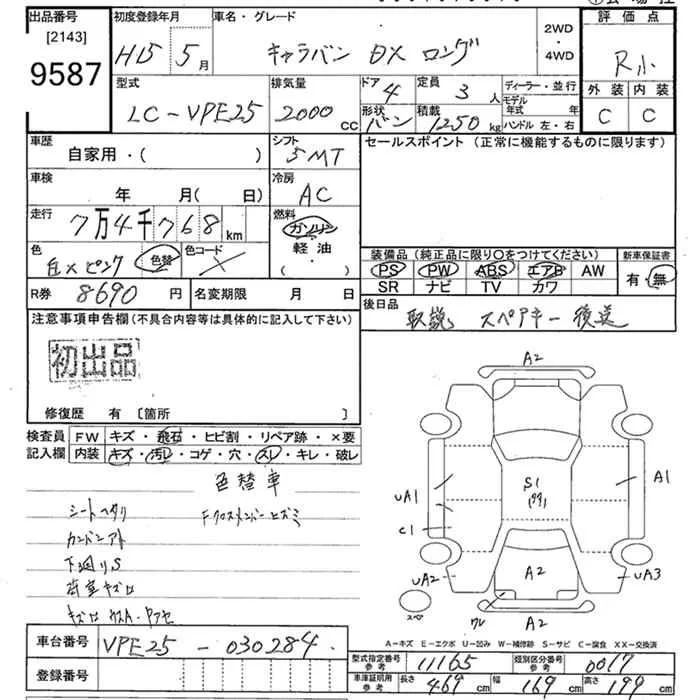 出品番号
[2143]
9587
初度登録年月
H15 5月
車名・グレード
キャラバン DX ロング
2WD
・
4WD
評価点
R小
外装 内装
C C
型式
LC-VPE25
排気量
2000 CC
ドア 4
形状 バン
定員 3 人
積載 1250 kg
ディーラー・並行
モデル年式 年
ハンドル 左・右
車歴
自家用・( )
シフト
5MT
セールスポイント (正常に機能するものに限ります)
車検
年 月( 日)
冷房
AC
走行
7万4千768 km
燃料
ガソリン
軽油
( ・ )
色
白×ピンク 色替
色コード
装備品 (純正品に限り○をつけてください)
PS PW ABS エアB AW
SR ナビ TV カワ
新車保証書
有・無
R券 8690 円
名変期限 月 日
後日品
取説 スペアキー後送
注意事項申告欄 (不具合内容等は具体的に記入して下さい)
初出品
修復歴 有 [箇所 ]
検査員記入欄
FW キズ・飛石・ヒビ割・リペア跡・×要
内装 キズ・汚レ・コゲ・穴・スレ・キレ・破レ
色替車
シートヘタリ
Fクロスメンバーヒズミ
カンバンアト
下廻りS
荷室キズ凹
A2
S1
A1
UA1
C1
UA2
A2
UA3
スペ
ワレ
A2
A-キズ E-エクボ U-凹み W-補修跡 S-サビ C-腐食 XX-交換済
車台番号 VPE25-030284
登録番号
型式指定番号 参考 11165
類別区分番号 参考 0017
車庫証明用 参考 長さ 469 cm 幅 169 cm 高さ 199 cm